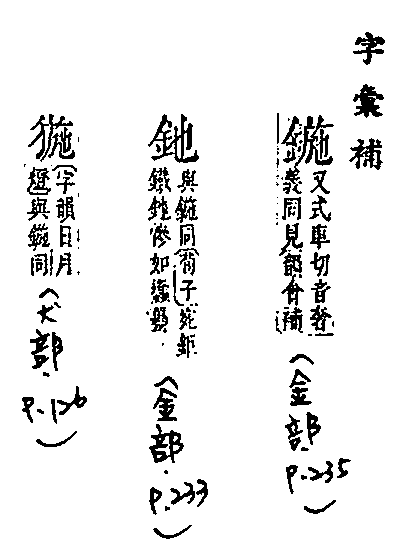 字彙補
又式車切音奢
義同見韻會補
(金部.
P.235)
釶
與 同荀子宛鉅
鐵釶慘如蠭蠆.
(金部.
P.233)
字韻日月
燈與 同
(犬部.
P.126)